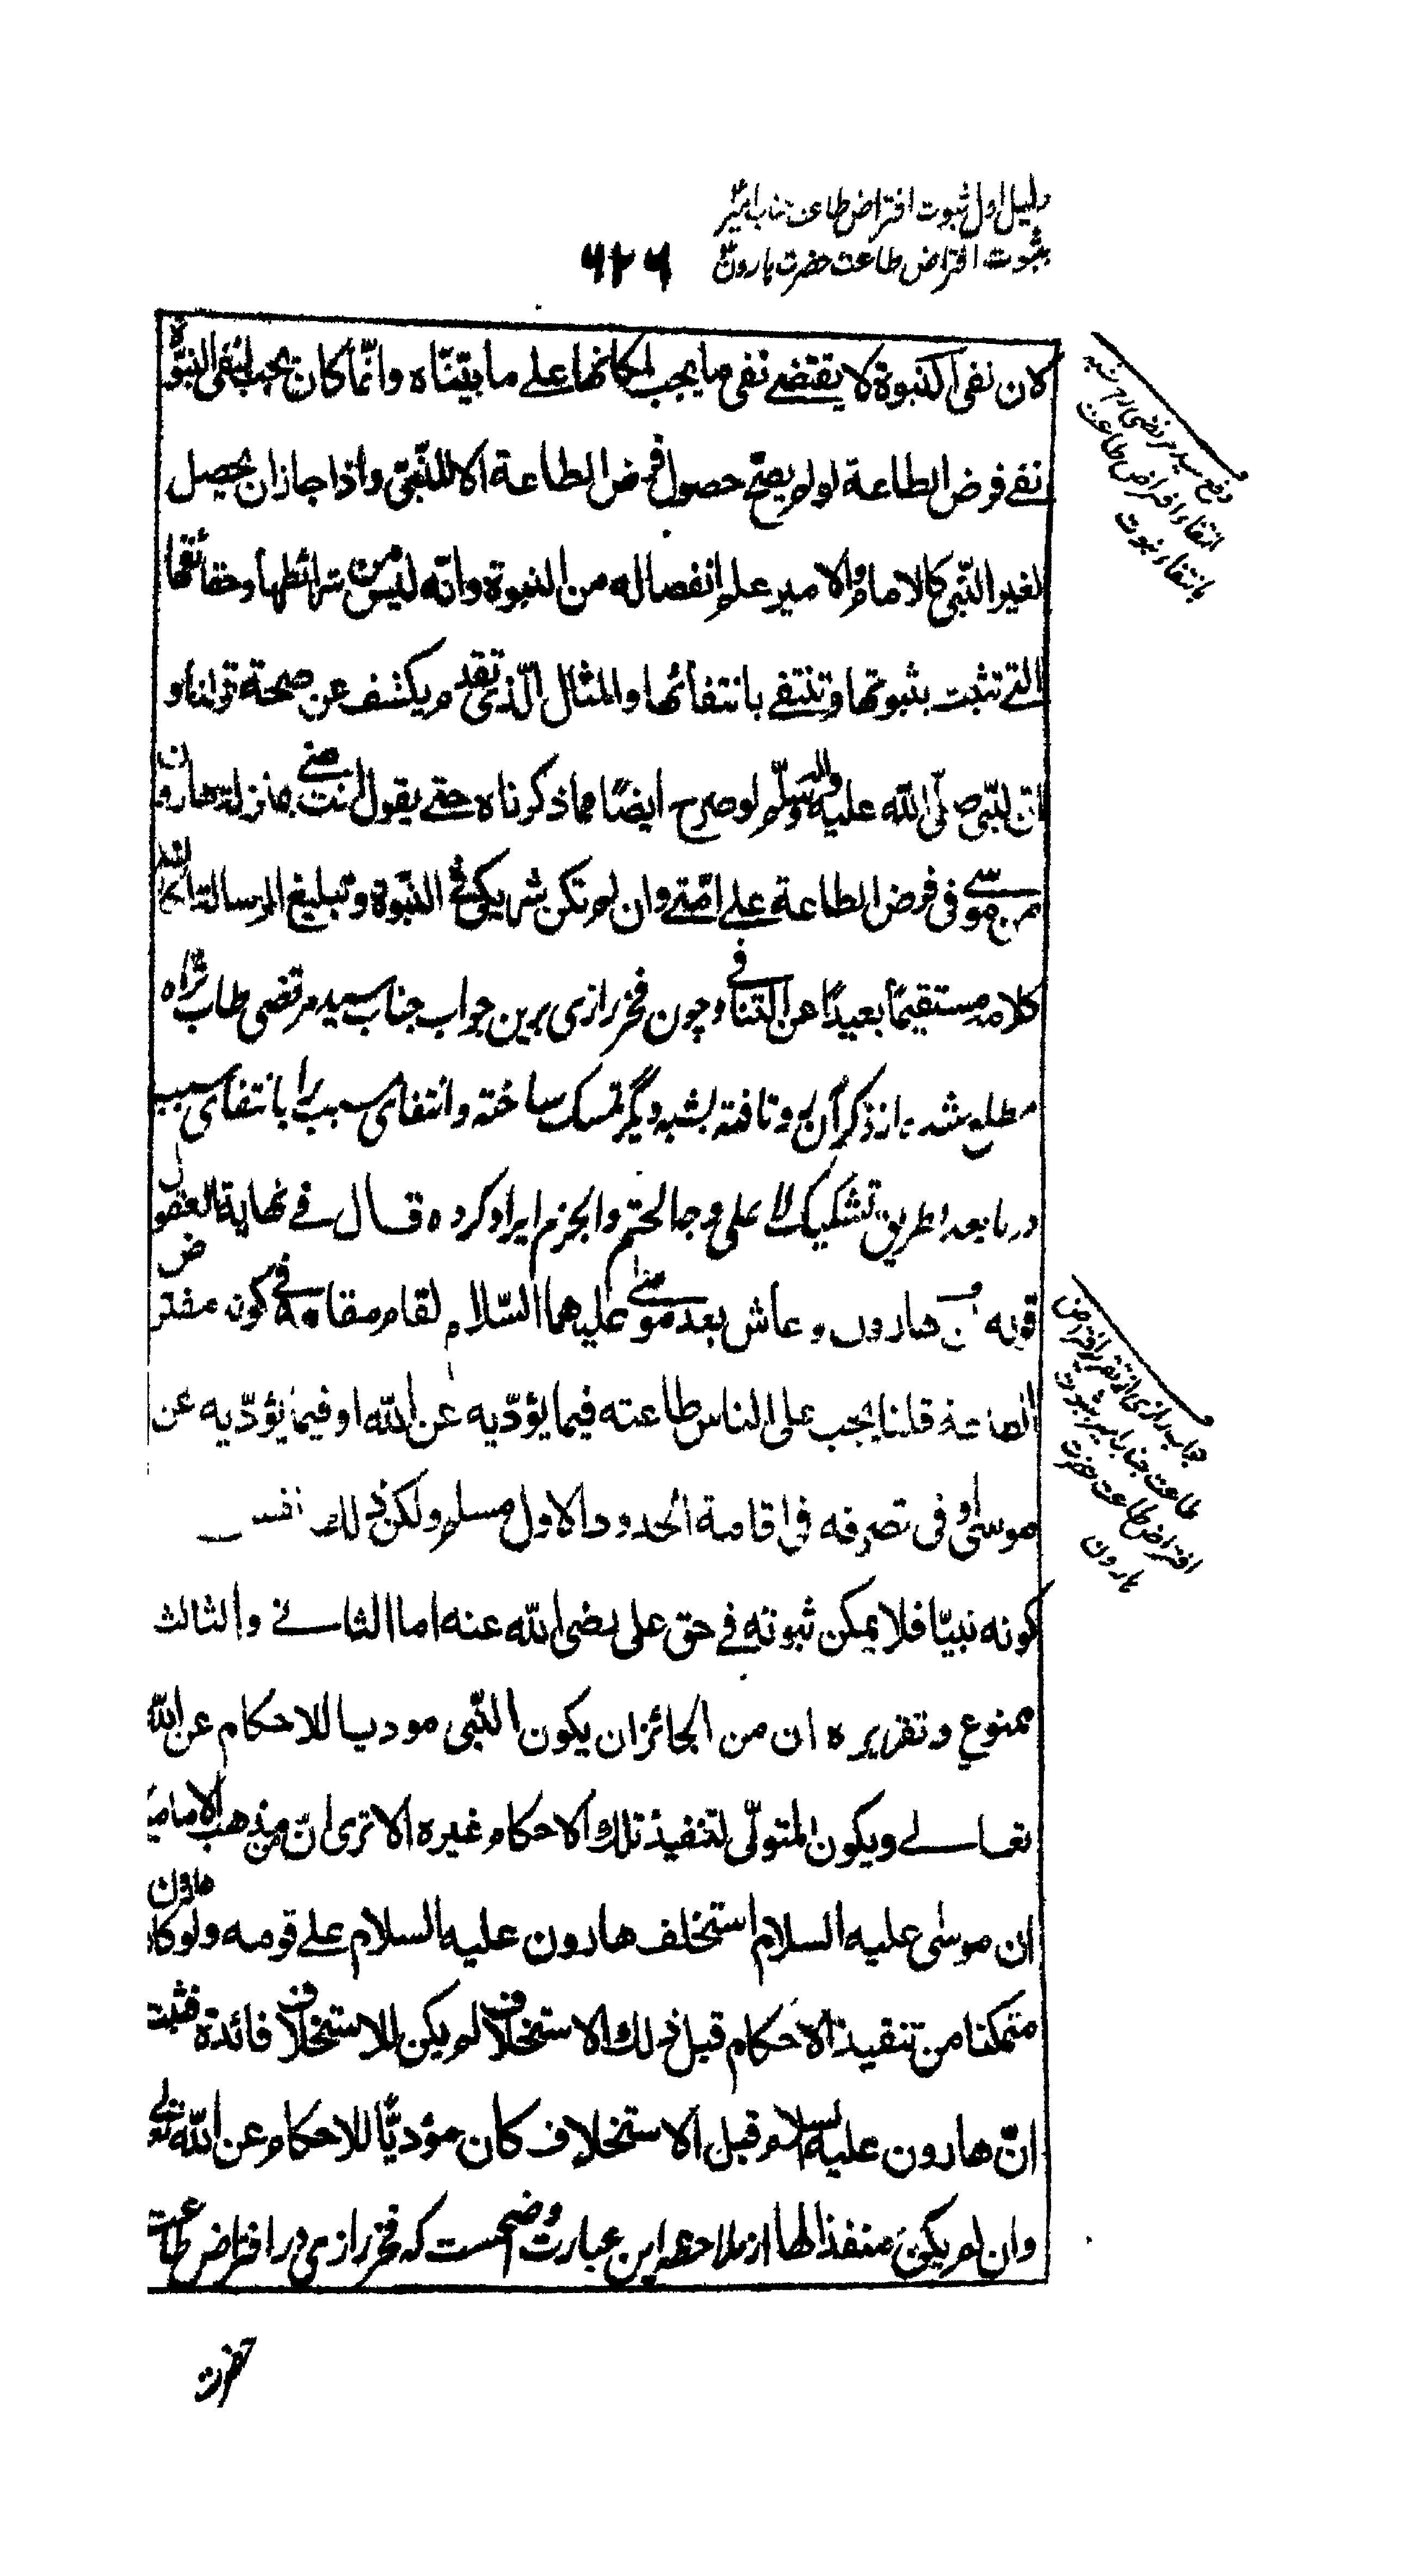 دلیل اول ثبوت افتراض طاعت جناب امیرؑ
بثبوت افتراض طاعت حضرت هارونؑ
۶۲۶
لان نفی النبوة لا یقتضے نفی ما یجب لمکانها علے ما بیّنّاه وانّما کان یجب لنفی النبوّة
نفے فرض الطاعة لو لم یصحّ حصول فرض الطاعة الا للنّبیّ واذا جاز ان یحصل
لغیر النّبی کالامام والامیر علم انفصاله من النبوة وانّه لیس من شرائطها وحقائقها
التے تثبت بثبوتها وتنتفے بانتفائها والمثال الّذی تقدم یکشف عن صحة قولنا و
انّ النّبی صلّی الله علیه واله وسلّم لو صرح ایضًا بما ذکرناه حتے یقول انت منّے بمنزلة هارون
من موسی فی فرض الطاعة علے امّتے وان لم تکن شریکی فے النّبوّة وتبلیغ الرسالة لکان
کلامه مستقیمًا بعیدًا عن التّنافی و چون فخر رازی برین جواب جناب سید مرتضی طاب ثراه
مطلع شده از ذکر آن رو تافته بشبه دیگر تمسک ساخته و انتفای سبب را بانتفای سبب
در ما بعد بطریق تشکیک لا علی وجه الحتم والجزم ایراد کرده قال فے نهایة العقول
قوله هارون لو عاش بعد موسی علیهما السّلام لقام مقامه فے کونه مفترض
الطاعة قلنا یجب علی الناس طاعته فیما یؤدّیه عن الله او فیما یؤدّیه عن
موسی او فی تصرفه فی اقامة الحدود الاول مسلم ولکن ذلك نفس
کونه نبیّا فلا یمکن ثبوته فے حق علی رضی الله عنه اما الثانے والثالث
ممنوع وتقریره ان من الجائز ان یکون النّبی مودیا للاحکام عن الله
تعالے ویکون المتولّی لتنفیذ تلك الاحکام غیره الا تری انّ من مذهب الامامیة
ان موسی علیه السلام استخلف هارون علیه السلام علے قومه ولو کان هارون
متمکنا من تنفیذ الاحکام قبل ذلك الاستخلاف لم یکن للاستخلاف فائدة فثبت
انّ هارون علیه السلام قبل الاستخلاف کان مؤدیًّا للاحکام عن الله تعالے
وان لم یکن منفذا لها از ملاحظه این عبارت واضحست که فخر رازی در افتراض طاعت
حضرت
دفع سید مرتضی
انتفاء افتراض طاعت
بانتفاء نبوت
جواب رازی از تقریر افتراض
طاعت جناب امیر بثبوت
افتراض طاعت حضرت
هارون